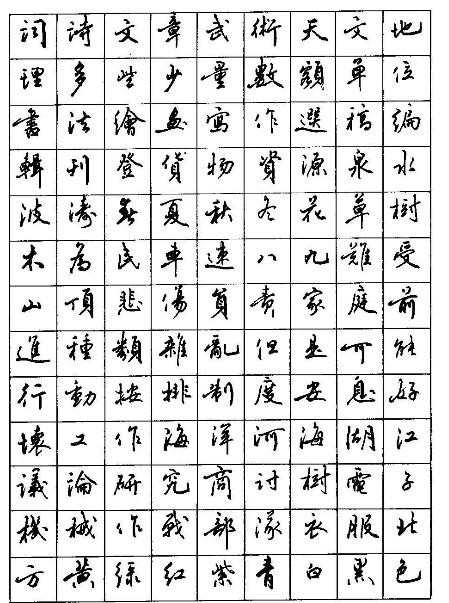 詞詩文章武術天文地
理多些少量數額單位
書法繪畫寫作選稿編
輯刊登貨物資源泉水
波濤春夏秋冬花草樹
木為民車速八九難受
山頂悲傷負責家庭前
進種類雜亂但是可能
行動按排制度安息好
壞工作海洋河海湖江
議論研究商討樹電子
機械作戰部隊衣服北
方黃綠紅紫青白黑色